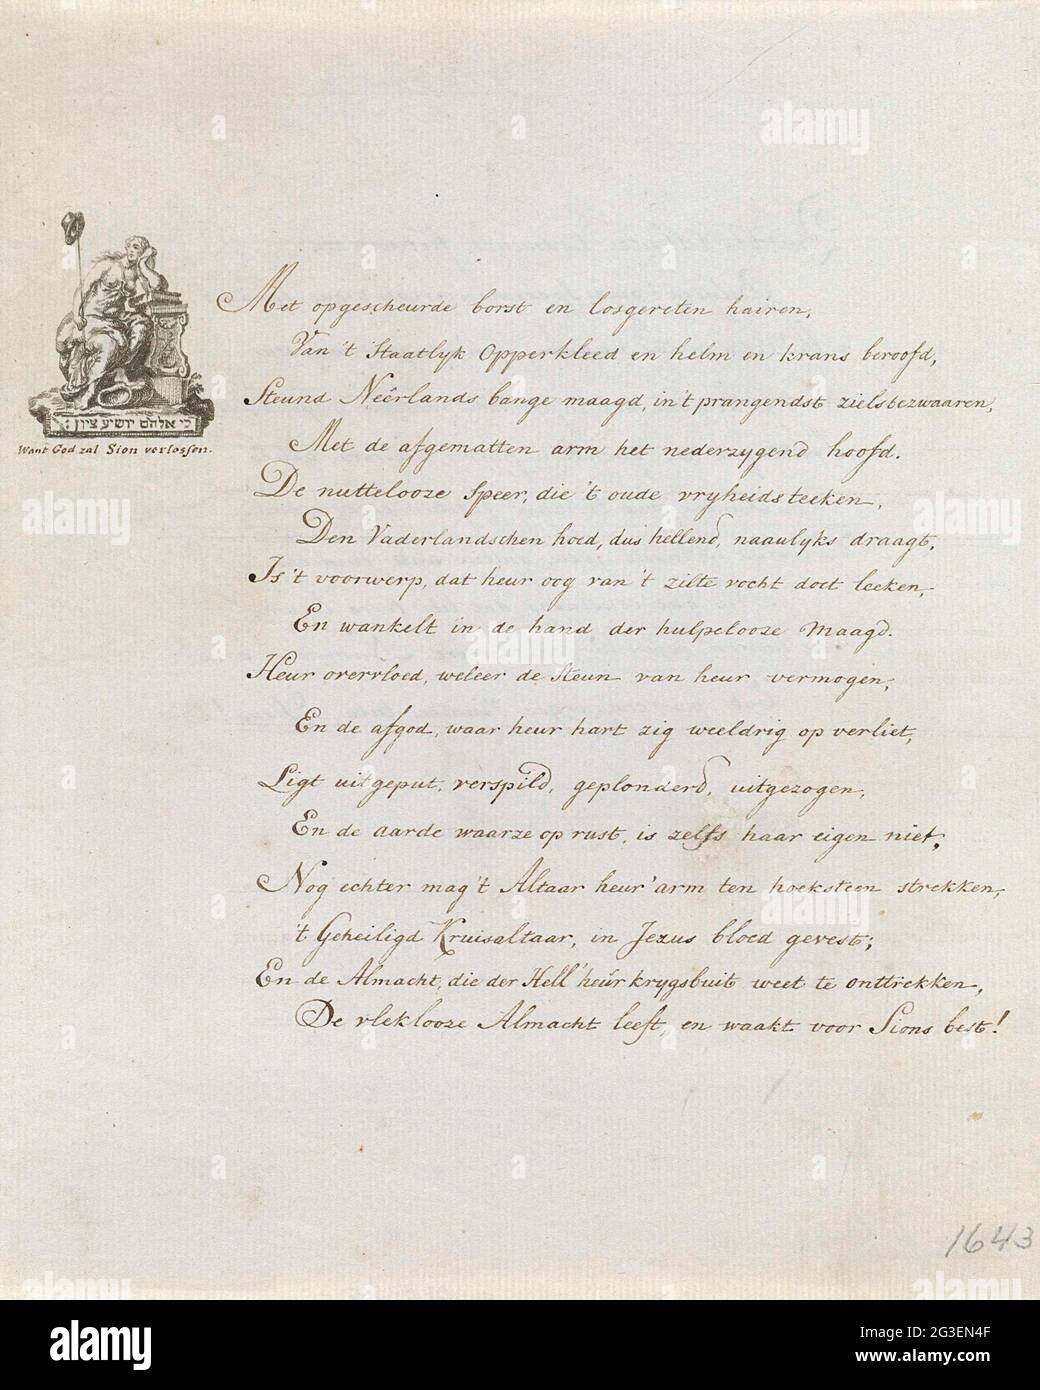 Met opgescheurde borst en losgereten hairen,
Van 't Staatlyk Opperkleed en helm en krans beroofd,
Steund Neêrlands bange maagd, in 't prangendst zielsbezwaaren,
Met de afgematten arm het nederzygend hoofd.
De nuttelooze Speer, die 't oude vryheidsteeken,
Den Vaderlandschen hoed, dus hellend, naaulyks draagt,
Is 't voorwerp, dat heur oog van 't zilte vocht doet leeken,
En wankelt in de hand der hulpelooze Maagd.
Heur overvloed, weleer de Steun van heur vermogen,
En de afgod, waar heur hart zig weeldrig op verliet,
Ligt uitgeput, verspild, geplonderd, uitgezogen,
En de aarde waarze op rust, is zelfs haar eigen niet;
Nog echter mag 't Altaar heur' arm ten hoeksteen strekken,
't Geheiligd Kruisaltaar, in Jezus bloed gevest;
En de Almacht, die der Hell' heur krygsbuit weet te onttrekken,
De vleklooze Almacht leeft, en waakt voor Sions best!
כי אלהים יושיע ציון:
Want God zal Sion verlossen.
1643
alamy
Image ID: 2G3EN4F
www.alamy.com